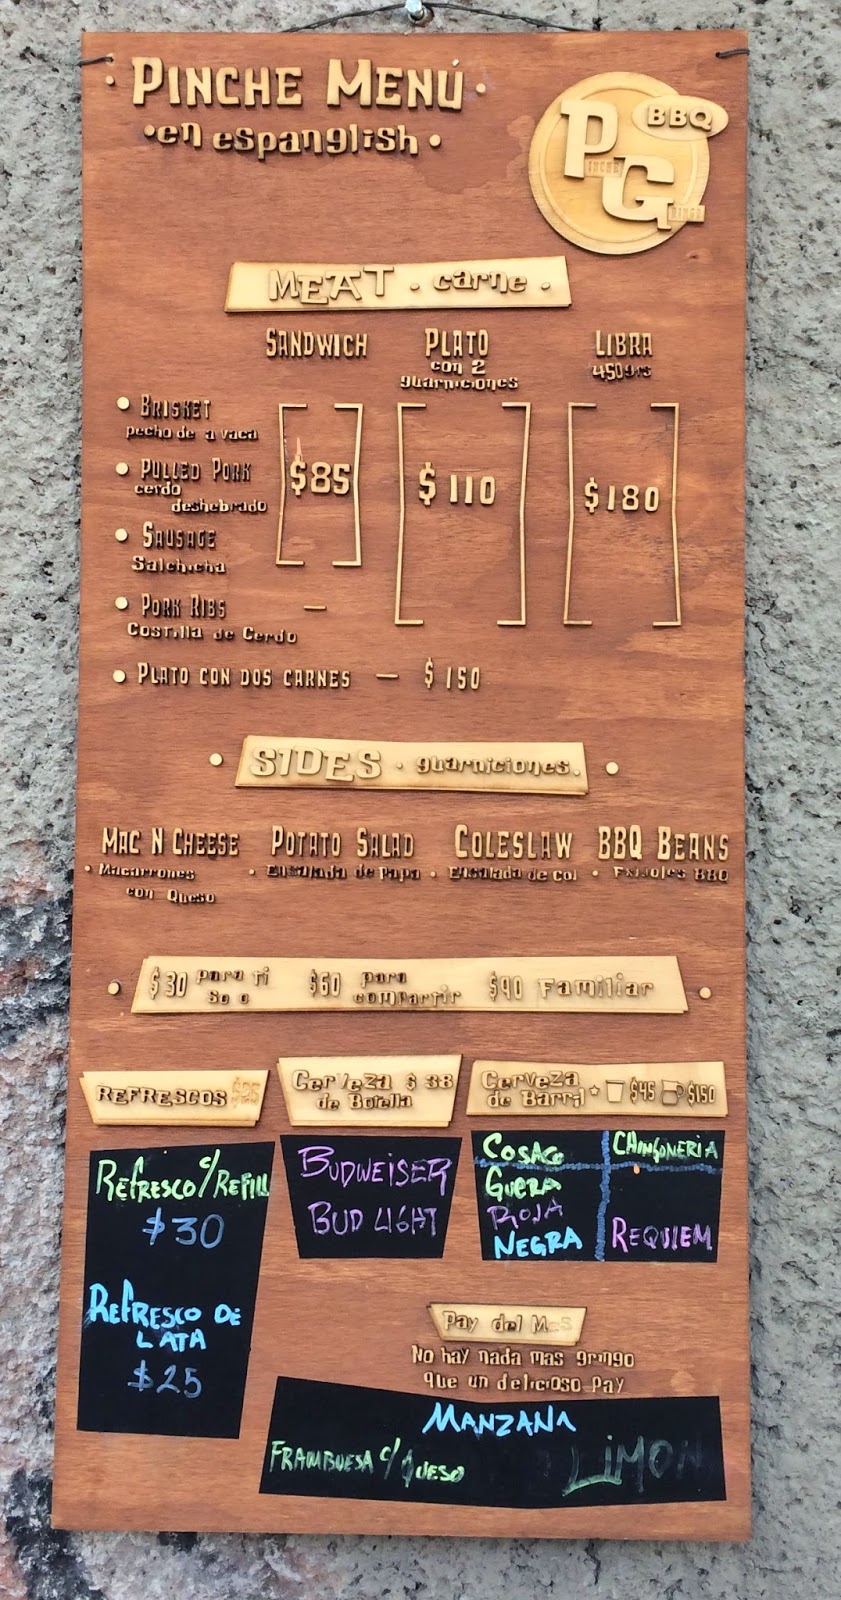 PINCHE MENÚ
en espanglish
BBQ
PG
PINCHE
MEAT · carne ·
SANDWICH PLATO LIBRA
con 2 450grs
guarniciones
• BRISKET
pecho de a vaca
• PULLED PORK $85 $110 $180
cerdo
deshebrado
• SAUSAGE
Salchicha
• PORK RIBS –
Costilla de Cerdo
• PLATO CON DOS CARNES – $150
• SIDES · guarniciones. •
MAC N CHEESE POTATO SALAD COLESLAW BBQ BEANS
· Macarrones · Ensalada de papa · Ensalada de col · Frijoles BBQ
con Queso
• $30 para ti $60 para $90 Familiar •
So o compartir
REFRESCOS $25 Cerveza $38 Cerveza $45 $150
de Botella de Barril
REFRESCO C/REFILL
$30
REFRESCO DE
LATA
$25
BUDWEISER
BUD LIGHT
COSACO CHINGONERIA
GUERA
ROJA
NEGRA REQUIEM
Pay del Mes
No hay nada mas gringo
que un delicioso pay
MANZANA
FRAMBUESA C/QUESO LIMON